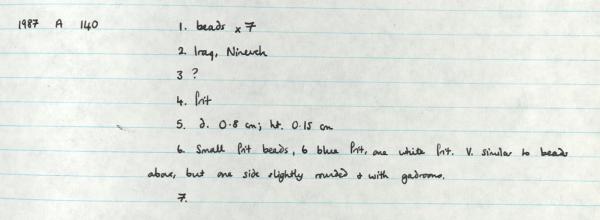 1987 A 140 1. beads x 7
2. Iraq, Nineveh
3 ?
4. frit
5. d. 0.8 cm; ht. 0.15 cm
6. Small frit beads, 6 blue frit, one white frit. V. similar to beads
above, but one side slightly rounded & with gadroons.
7.